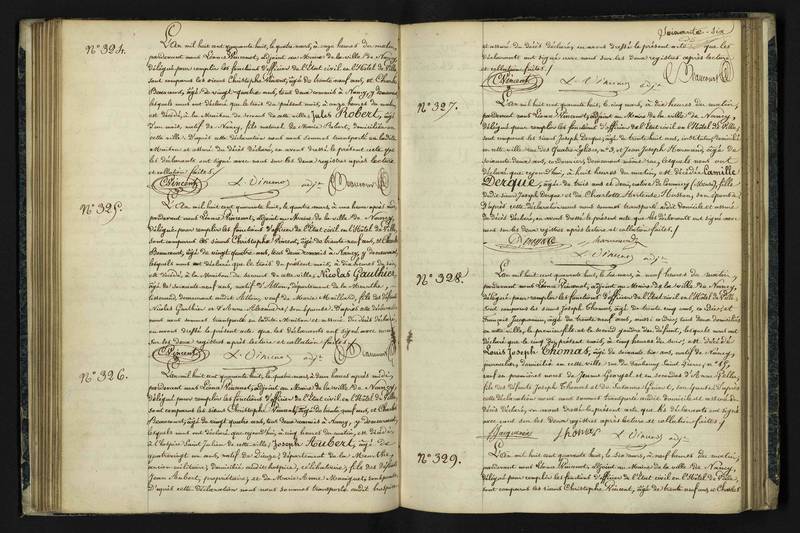 Nº 324.
L'An mil huit cent quarante huit, le quatre mars, à onze heures du matin,
pardevant nous Léonce Vincent, adjoint au Maire de la ville de Nancy,
délégué pour remplir les fonctions d'officier de l'Etat civil en l'Hôtel de Ville,
sont comparus les sieurs Christophe Vincent, âgé de trente neuf ans, et Charles
Beaucourt, âgé de vingt quatre ans, tout deux commis à Nancy, y demeurant,
lesquels nous ont déclaré que le trois du présent mois, à onze heures du matin,
est décédé, à la Maison de secours de cette ville, Jules Robert, âgé
d'un mois, natif de Nancy, fils naturel de Marie Robert, domiciliée en
cette ville. D'après cette déclaration nous nous sommes transporté en ladite
Maison et assuré du décès déclaré, en avons dressé le présent acte que
les déclarants ont signé avec nous sur les deux registres après lecture
et collation faites!
CVincent L. Vincent adj. Beaucourt
Nº 325.
L'An mil huit cent quarante huit, le quatre mars, à une heure après midi,
pardevant nous Léonce Vincent, adjoint au Maire de la ville de Nancy,
délégué pour remplir les fonctions d'officier de l'Etat civil en l'Hôtel de Ville,
sont comparus les sieurs Christophe Vincent, âgé de trente neuf ans, et Charles
Beaucourt, âgé de vingt quatre ans, tout deux commis à Nancy, y demeurant,
lesquels nous ont déclaré que le trois du présent mois, à dix heures du soir,
est décédé, à la Maison de secours de cette ville, Nicolas Gauthier,
âgé de soixante neuf ans, natif d'Allain, département de la Meurthe,
demeurant audit Allain, veuf de Marie Maillard, fils des défunts
Nicolas Gauthier et son épouse. D'après cette déclaration
nous nous sommes transporté en ladite Maison et assuré du décès déclaré,
en avons dressé le présent acte que les déclarants ont signé avec nous
sur les deux registres après lecture et collation faites!
CVincent L. Vincent adj. Beaucourt
Nº 326.
L'An mil huit cent quarante huit, le quatre mars, à deux heures après midi,
pardevant nous Léonce Vincent, adjoint au Maire de la ville de Nancy,
délégué pour remplir les fonctions d'officier de l'Etat civil en l'Hôtel de Ville,
sont comparus les sieurs Christophe Vincent, âgé de trente neuf ans, et Charles
Beaucourt, âgé de vingt quatre ans, tout deux commis à Nancy, y demeurant,
lesquels nous ont déclaré que cejourd'hui, à cinq heures du matin, est décédé,
à l'hospice Saint Julien de cette ville, Joseph Aubert, âgé de
quatrevingt un ans, natif de Dieuze, département de la Meurthe,
ancien militaire, domicilié audit hospice, célibataire, fils des défunts
Jean Aubert, propriétaire, et de Marie Anne son épouse.
D'après cette déclaration nous nous sommes transporté audit hospice
Soixante-six
et assuré du décès déclaré, en avons dressé le présent acte que les
déclarants ont signé avec nous sur les deux registres après lecture
et collation faites!
CVincent L. Vincent adj. Beaucourt
Nº 327.
L'An mil huit cent quarante huit, le cinq mars, à dix heures du matin,
pardevant nous Léonce Vincent, adjoint au Maire de la ville de Nancy,
délégué pour remplir les fonctions d'officier de l'Etat civil en l'Hôtel de Ville,
sont comparus les sieurs Joseph Derque, âgé de trente huit ans, domicilié
en cette ville rue des Quatre Eglises, nº 3, et Jean Joseph âgé de
soixante deux ans, demeurant même rue, lesquels nous ont
déclaré que cejourd'hui, à huit heures du matin, est décédée Camille
Derque, âgée de trois ans et native de Commercy (Meuse), fille
dudit sieur Joseph Derque et de Charlotte Husson, son épouse.
D'après cette déclaration nous nous sommes transporté audit domicile et assuré
du décès déclaré, en avons dressé le présent acte que les déclarants ont signé avec
nous sur les deux registres après lecture et collation faites!
Derque
L. Vincent adj.
Nº 328.
L'An mil huit cent quarante huit, le six mars, à neuf heures du matin,
pardevant nous Léonce Vincent, adjoint au Maire de la ville de Nancy,
délégué pour remplir les fonctions d'officier de l'Etat civil en l'Hôtel de Ville,
sont comparus les sieurs Joseph Thomas, âgé de trente cinq ans, et
François Jacquemin, âgé de trente neuf ans, tout deux domiciliés
en cette ville, le premier fils et le second gendre du défunt, lesquels nous ont
déclaré que le cinq du présent mois, à cinq heures du soir, est décédé
Louis Joseph Thomas, âgé de soixante six ans, natif de Nancy,
journalier, domicilié en cette ville rue du faubourg Saint Pierre, nº 65,
veuf en premières noces de Jeanne et en secondes d'Anne
fils des défunts Joseph Thomas et de Suzanne son épouse. D'après
cette déclaration nous nous sommes transporté audit domicile et assuré du
décès déclaré, en avons dressé le présent acte que les déclarants ont signé
avec nous sur les deux registres après lecture et collation faites!
Jacquemin Thomas L. Vincent adj.
Nº 329.
L'An mil huit cent quarante huit, le six mars, à neuf heures du matin,
pardevant nous Léonce Vincent, adjoint au Maire de la ville de Nancy,
délégué pour remplir les fonctions d'officier de l'Etat civil en l'Hôtel de Ville,
sont comparus les sieurs Christophe Vincent, âgé de trente neuf ans, et Charles